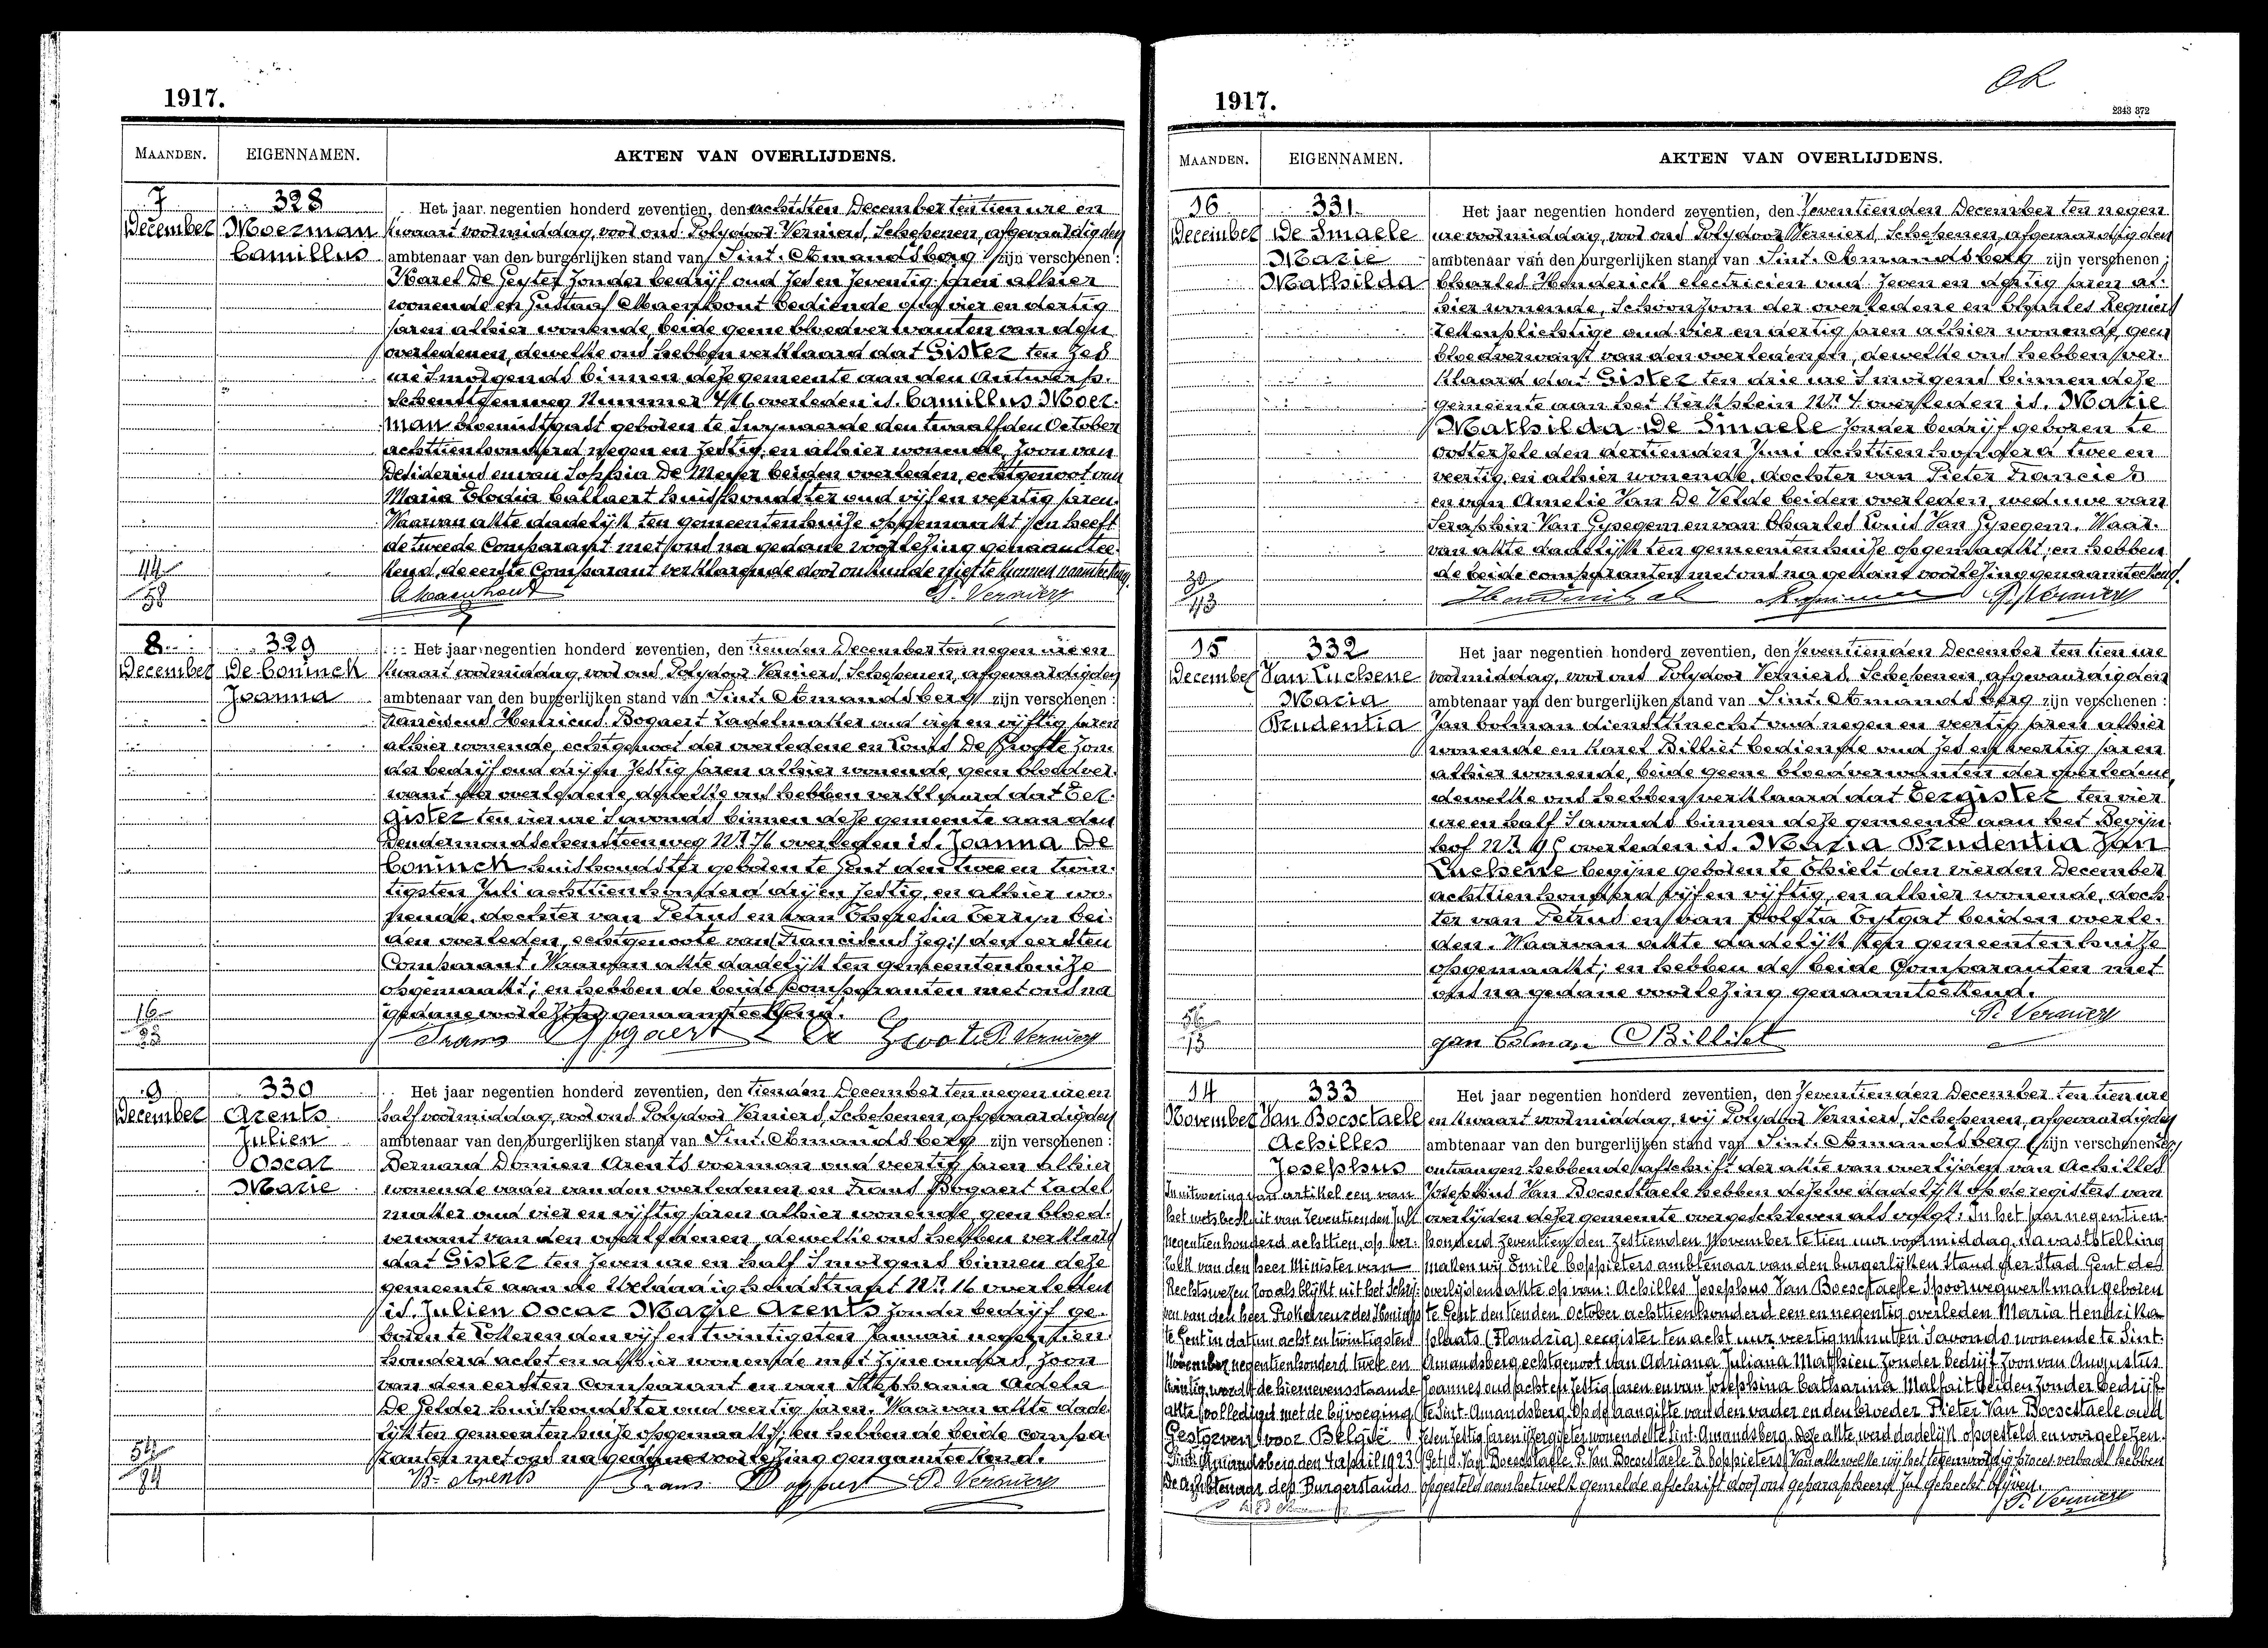 1917.
MAANDEN. EIGENNAMEN. AKTEN VAN OVERLIJDENS.
7 328 Het jaar negentien honderd zeventien, den achtsten December ten tien ure en
December Moerman kwaart voormiddag, voor ons Polydoor Verniers, Schepenen, afgevaardigden
Camillus ambtenaar van den burgerlijken stand van Sint. Amandsberg zijn verschenen :
Karel De Geyter zonder bedrijf oud zes en zeventig jaren alhier
wonende en Gustaaf Maenhout bediende oud vier en dertig
jaren alhier wonende, beide geene bloedverwanten van den
overledenen, dewelke ons hebben verklaard dat Gister ten zes
ure Smorgends binnen deze gemeente aan den Antwerp-
schensteenweg Nummer overleden is. Camillus Moer-
man bloemistgast geboren te Swynaerde den twaalfden October
achttienhonderd negen en zestig, en alhier wonende, zoon van
Desiderius en van Sophia De Meyer beiden overleden, echtgenoot van
Maria Elodia Callaert huishoudster oud vijf en veertig jaren.
Waarvan akte dadelijk ten gemeentenhuize opgemaakt; en heeft
de tweede Comparant met ons na gedane voorlezing genaamtee-
kend, de eerste Comparant verklarende door onkunde niet te kunnen naamteekenen.
44 Maenhout P. Verniers
58
8 329 Het jaar negentien honderd zeventien, den tienden December ten negen ure en
December De Coninck kwaart voormiddag, voor ons Polydoor Verniers, Schepenen, afgevaardigden
Joanna ambtenaar van den burgerlijken stand van Sint. Amandsberg zijn verschenen :
Franciscus Henricus Bogaert Zadelmaker oud vier en vijftig jaren
alhier wonende, echtgenoot der overledene en Louis De Groote zon-
der bedrijf oud drij en zestig jaren alhier wonende, geen bloedver-
want der overledene, dewelke ons hebben verklaard dat Eer-
gister ten vier ure Savonds binnen deze gemeente aan den
Dendermondschensteenweg Nr. 76 overleden is. Joanna De
Coninck huishoudster geboren te Gent den twee en twin-
tigsten Juli achttienhonderd drij en zestig, en alhier wo-
nende, dochter van Petrus en van Theresia Terryn bei-
den overleden, echtgenoote van Franciscus zegt den eersten
Comparant. Waarvan akte dadelijk ten gemeentenhuize
opgemaakt; en hebben de beide Comparanten met ons na
gedane voorlezing genaamteekend.
16 Frans Bogaert L De Groote P. Verniers
33
9 330 Het jaar negentien honderd zeventien, den tienden December ten negen ure en
December Arents half voormiddag, voor ons Polydoor Verniers, Schepenen, afgevaardigden
Julien ambtenaar van den burgerlijken stand van Sint. Amandsberg zijn verschenen :
Oscar Bernard Domien Arents voerman oud veertig jaren alhier
Marie wonende vader van den overledenen en Frans Bogaert Zadel
maker oud vier en vijftig jaren alhier wonende, geen bloed-
verwant van den overledenen, dewelke ons hebben verklaard
dat Gister ten zeven ure en half Smorgens binnen deze
gemeente aan de Nr. 16 overleden
is. Julien Oscar Marie Arents zonder bedrijf ge-
boren te Lokeren den vijf en twintigsten Januari negentien-
honderd acht en alhier wonende met zijne ouders, zoon
van den eersten Comparant en van Stephania Adela
De Gelder huishoudster oud veertig jaren. Waarvan akte dade-
lijk ten gemeentenhuize opgemaakt; en hebben de beide Compa-
ranten met ons na gedane voorlezing genaamteekend.
B. Arents Frans Bogaert P. Verniers
1917.
2343 372
MAANDEN. EIGENNAMEN. AKTEN VAN OVERLIJDENS.
16 331 Het jaar negentien honderd zeventien, den zeventienden December ten negen
December De Smaele ure voormiddag, voor ons Polydoor Verniers, Schepenen, afgevaardigden
Marie ambtenaar van den burgerlijken stand van Sint. Amandsberg zijn verschenen :
Mathilda Charles Henderick electricien oud zeven en dertig jaren al-
hier wonende, Schoonzoon der overledene en Charles Regniers
Lettenplichtige oud vier en dertig jaren alhier wonende, geen
bloedverwant van den overledenen, dewelke ons hebben ver-
klaard dat Gister ten drie ure Smorgend binnen deze
gemeente aan het Kerkplein Nr. 4 overleden is. Marie
Mathilda De Smaele zonder bedrijf geboren te
Oosterzele den dertienden Juni achttienhonderd twee en
veertig, en alhier wonende, dochter van Pieter Francies
en van Amelie Van De Velde beiden overleden, weduwe van
Seraphin Van Gysegem en van Charles Louis Van Gysegem. Waar-
van akte dadelijk ten gemeentenhuize opgemaakt; en hebben
de beide comparanten met ons na gedane voorlezing genaamteekend.
30 P. Verniers
43
15 332 Het jaar negentien honderd zeventien, den zeventienden December ten tien ure
December Van Luchene voormiddag, voor ons Polydoor Verniers, Schepenen, afgevaardigden
Maria ambtenaar van den burgerlijken stand van Sint. Amandsberg zijn verschenen :
Prudentia Jan Colman dienstknecht oud negen en veertig jaren alhier
wonende en Karel Billiet bediende oud zes en veertig jaren
alhier wonende, beide geene bloedverwanten der overledene,
dewelke ons hebben verklaard dat Eergister ten vier
ure en half Savonds binnen deze gemeente aan het Begijn
hof Nr. overleden is. Maria Prudentia Van
Luchene begijne geboren te Thielt den vierden December
achttienhonderd vijf en vijftig, en alhier wonende, doch-
ter van Petrus en van Coleta Tytgat beiden overle-
den. Waarvan akte dadelijk ten gemeentenhuize
opgemaakt; en hebben de beide Comparanten met
ons na gedane voorlezing genaamteekend.
P. Verniers
13 Jan Colman C Billiet
14 333 Het jaar negentien honderd zeventien, den zeventienden December ten tien ure
November Van Bocsctaele en kwaart voormiddag, wij Polydoor Verniers, Schepenen, afgevaardigden
Achilles ambtenaar van den burgerlijken stand van Sint. Amandsberg zijn verschenen
Josephus ontvangen hebbende afschrift der akte van overlijden van Achilles
In uitvoering van artikel een van Josephus Van Bocsctaele hebben dezelve dadelijk op de registers van
het wetsbesluit van zeventienden Juli overlijden dezer gemeente overgeschreven als volgt: In het jaar negentien-
negentienhonderd achttien, op ver- honderd zeventien den zestienden November te tien uur voormiddag, na vaststelling
zoek van den heer Minister van maken wij Emile Coppieters ambtenaar van den burgerlijken stand der Stad Gent de
Rechtswezen zooals blijkt uit het schrij- overlijdensakte op van: Achilles Josephus Van Bocsctaele Spoorwegwerkman geboren
ven van den heer Prokureur des Konings te Gent den tienden October achttienhonderd een en negentig overleden Maria Hendrika
te Gent in datum acht en twintigsten plaats (Flandria) eergister ten acht uur veertig minuten Savonds wonende te Sint-
November negentienhonderd twee en Amandsberg echtgenoot van Adriana Juliana Matthieu zonder bedrijf zoon van Augustus
twintig, wordt de hiernevensstaande Joannes oud acht en zestig jaren en van Josephina Catharina Malfait beiden zonder bedrijf
akte volledigd met de bijvoeging te Sint-Amandsberg. Op de aangifte van den vader en den broeder Pieter Van Bocsctaele oud
Gestorven voor België zes en zestig jaren wonende te Sint-Amandsberg. Deze akte werd dadelijk opgesteld en voorgelezen.
Sint-Amandsberg den 4 april 1923 (Get) A. Van Bocsctaele P. Van Bocsctaele E Coppieters) Van alle welke wij het tegenwoordig proces verbaal hebben
De ambtenaar des Burgerstands opgesteld aan hetwelk gemelde afschrift door ons geparapheerd zal gehecht blijven.
P. Verniers